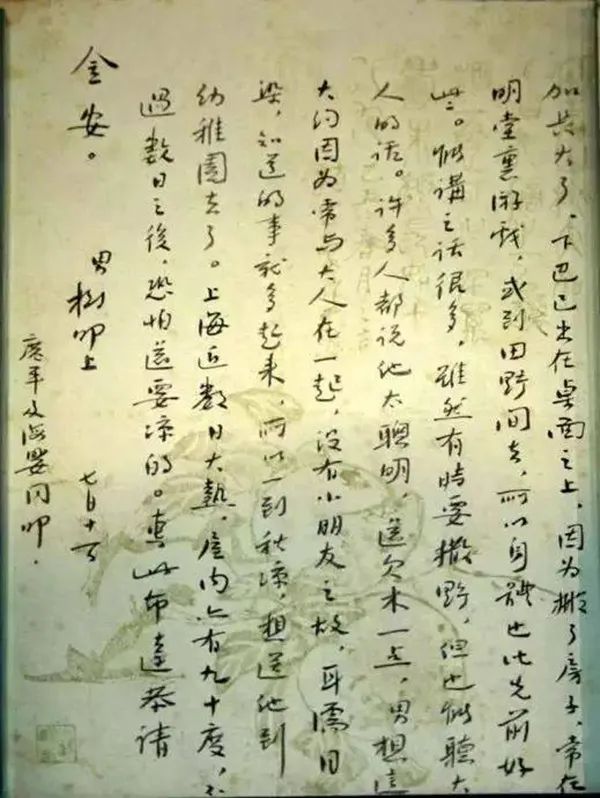 加長大了，下巴已出在桌面之上，因为搬了房子，常在
明堂裏游戏，或到田野間去，所以身體也比先前好
些。能講之话很多，雖然有时要撒野，但也能聽大
人的话。许多人都说他太聰明，还欠木一点，男想這
大约因为常与大人在一起，没有小朋友之故，耳濡目
染，知道的事就多起来，所以一到秋凉，想送他到
幼稚園去了。上海近数日大熱，屋内亦有九十度，不
過数日之後，恐怕還要凉的。專此布達恭请
金安。
男樹叩上 七月十一日
廣平及海嬰同叩．